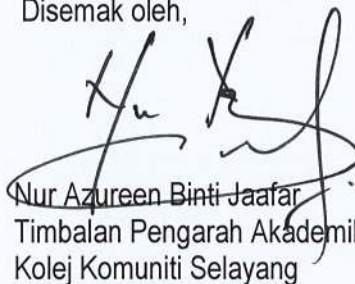 Disemak oleh,
Nur Azureen Binti Jaafar
Timbalan Pengarah Akademik
Kolej Komuniti Selayang